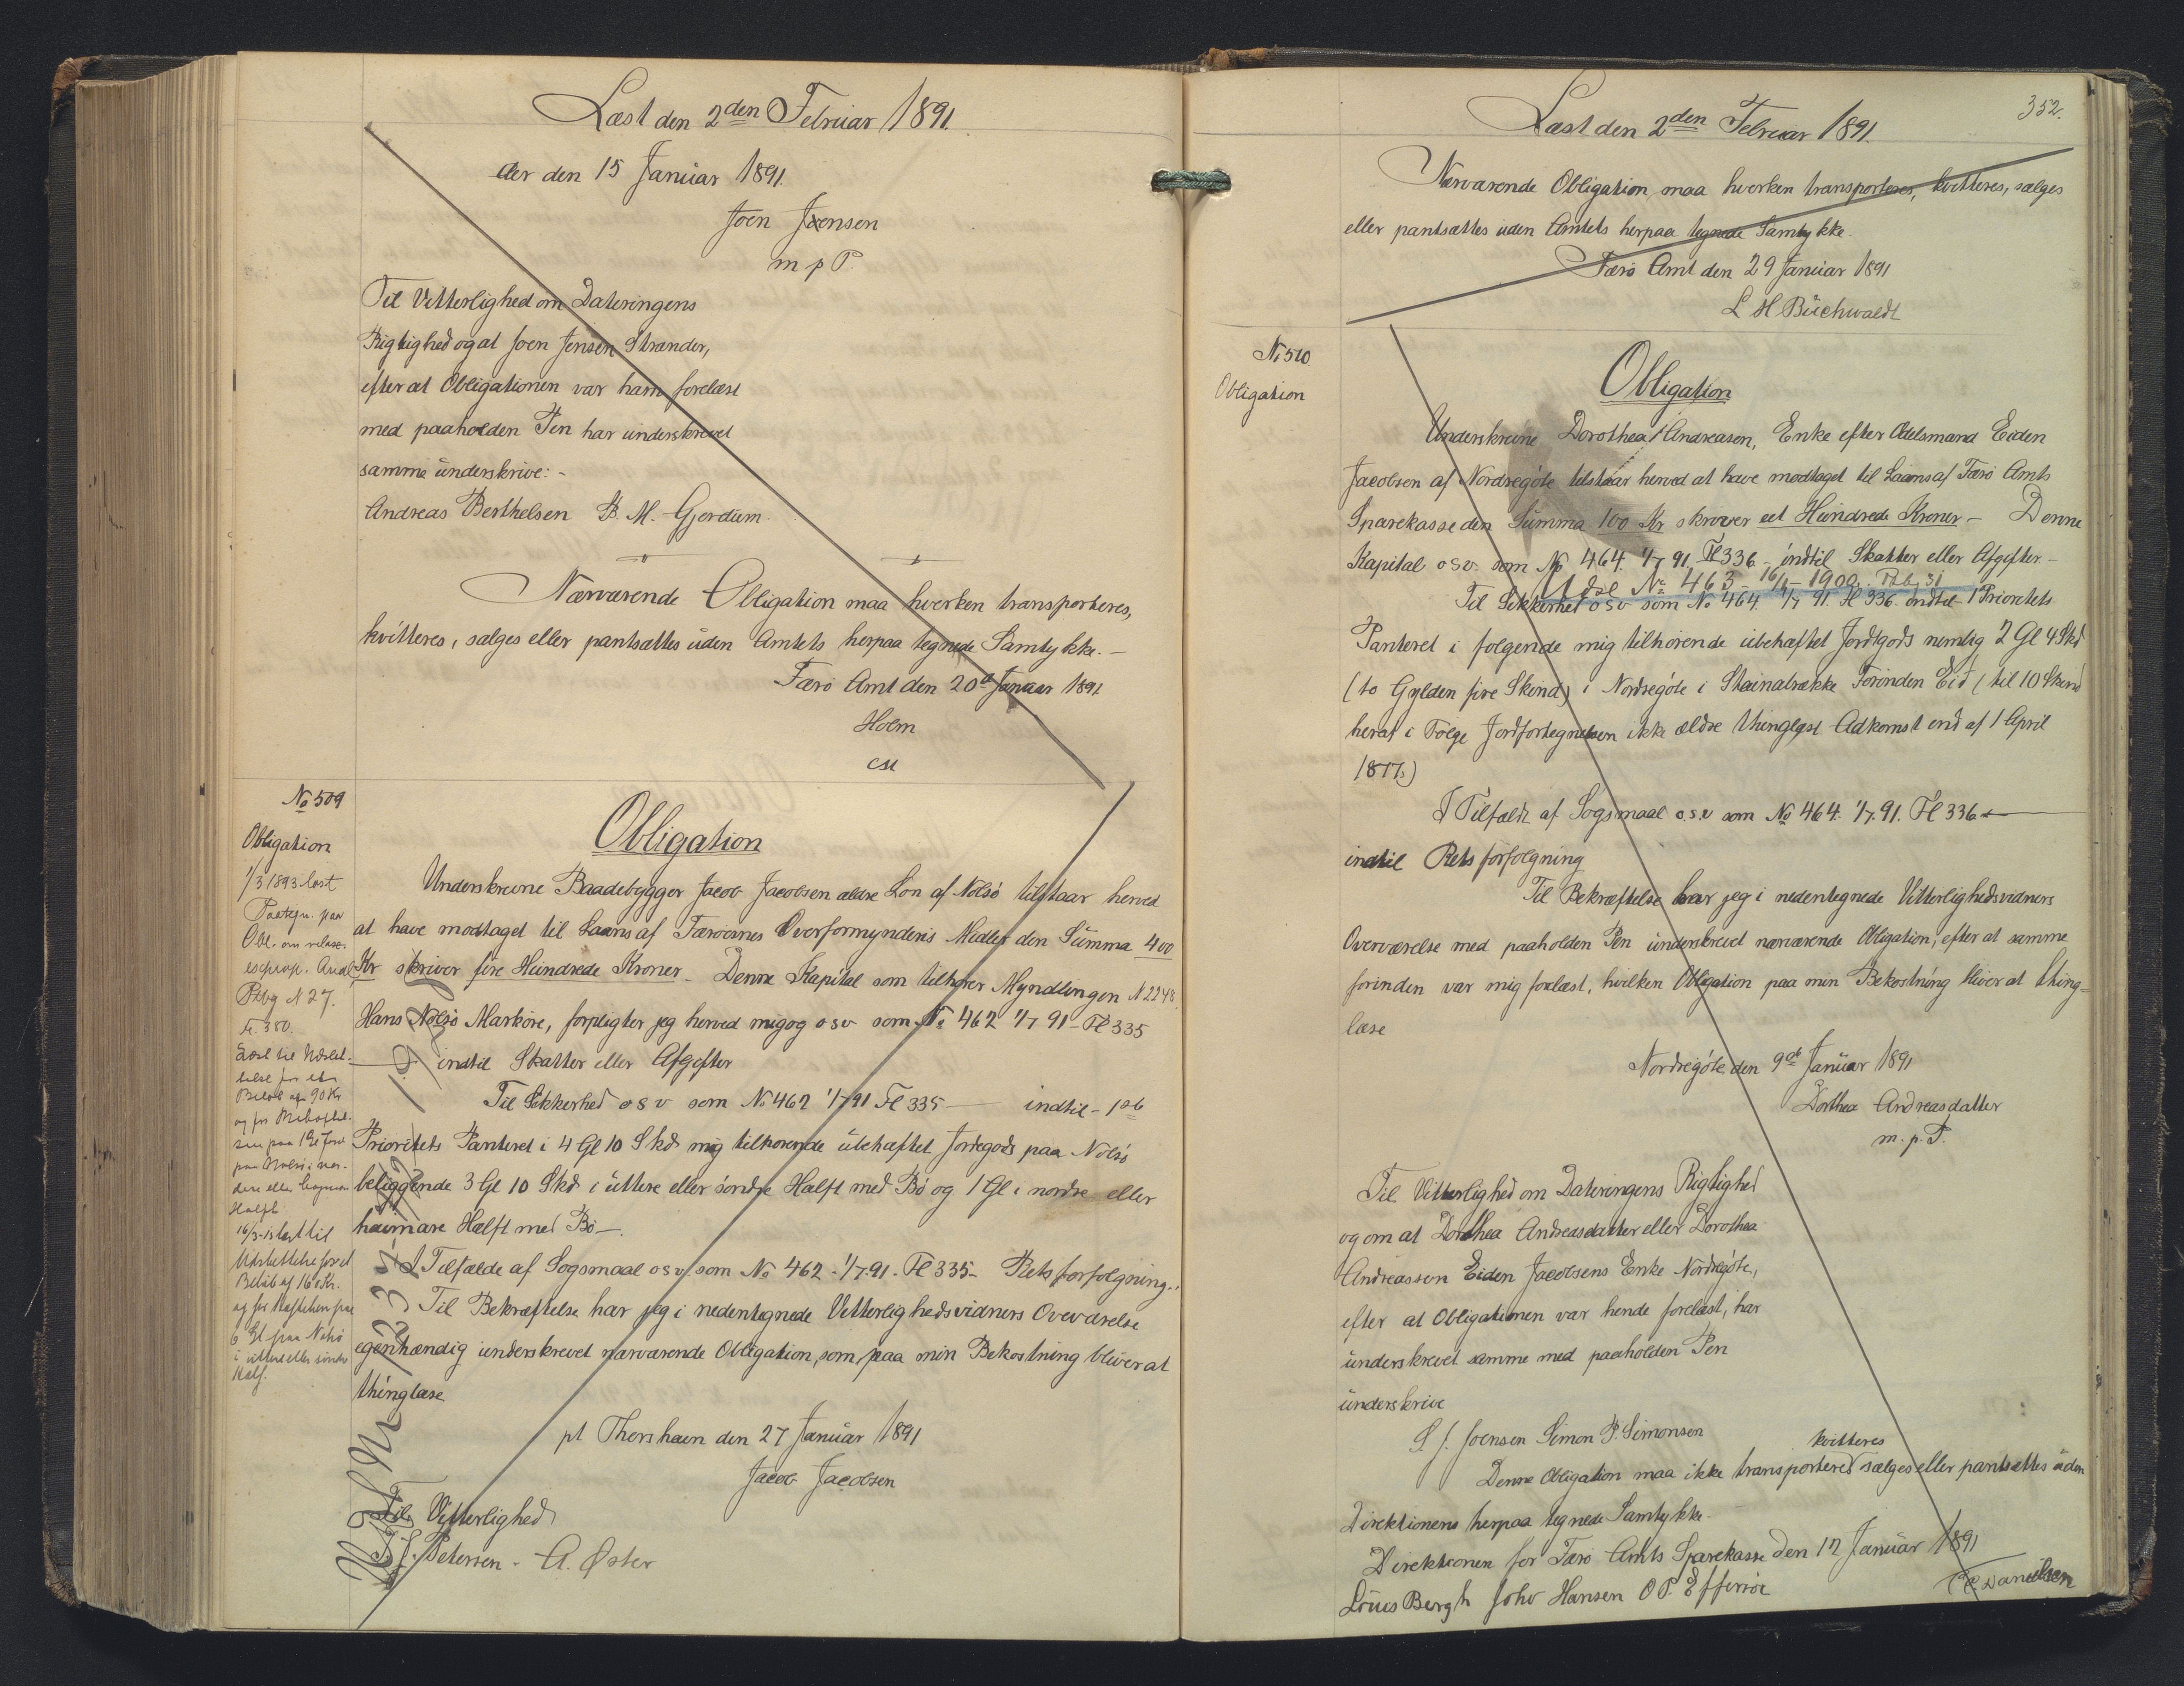 Læst den 2den Februar 1891.
der den 15 Januar 1891.
Joen Joensen
m p P.
Til Vitterlighed om Dateringens
Rigtighed og at Joen Jensen Strander,
efter at Obligationen var ham forelæst
med paaholden Pen har underskrevet
samme underskrive: -
Andreas Berthelsen B. M. Gjerdum.
Nærværende Obligation maa hverken transporteres,
kvitteres, sælges eller pantsættes uden Amtets herpaa tegnede Samtykke. -
Færø Amt den 20d Januar 1891
Holm
cst
No 509
Obligation
1/3 1893 læst
Paategn. paa
Obl. om relax.
Ptbg N 27.
fr. 380.
Læst til Udslet-
telse for et
Beløb af 90 Kr
16/3-15 læst til
Udslettelse for et
Beløb af 160 Kr.
og for Hæftelsen paa
6 Gl paa Nolsø
i uttere eller söndre
Half.
Obligation
Underskrevne Baadebygger Jacob Jacobsen ældre Søn af Nolsø tilstaar herved
at have modtaget til Laans af Færøernes Overformynderis Midler den Summa 400
Kr skriver fire Hundrede Kroner. Denne Kapital som tilhører Myndlingen N 2248
Hans Nolsø Markøre, forpligter jeg herved mig og osv som No 462 1/7 91 - Fl 335
indtil Skatter eller Afgifter
Til Sikkerhed o s v som No 462 1/7 91 Fl 335 — indtil - 1ste
Prioritets Panteret i 4 Gl 10 Skd mig tilhørende ubehæftet Jordegods paa Nolsö
beliggende 3 Gl 10 Skd i uttere eller söndre Halft med Bö og 1 Gl i nordre eller
haimare Halft med Bö -.
I Tilfælde af Sogsmaal osv. som No 462 - 1/7 91. Fl 335 - Rets forfølgning..
Til Bekræftelse har jeg i nedentegnede Vitterlighedsvidners Overværelse
egenhændig underskrevet nærværende Obligation, som paa min Bekostning bliver at
thinglæse
pt Thorshavn den 27 Januar 1891
Jacob Jacobsen
Til Vitterlighed
J. Petersen - A. Øster
352.
Læst den 2den Februar 1891.
Nærværende Obligation maa hverken transporteres, kvitteres, sælges
eller pantsættes uden Amtets herpaa tegnede Samtykke.
Færø Amt den 29 Januar 1891
L H Buchwaldt
No 510
Obligation
Obligation
Underskrevne Dorothea Andreasen, Enke efter Odelsmand Eiden
Jacobsen af Nordregöte tilstaar herved at have modtaget til Laans af Færø Amts
Sparekasse den Summa 100 Kr skriver eet Hundrede Kroner - Denne
Kapital o s v. som No 464. 1/7 91. Fl 336 - indtil Skatter eller Afgifter -
Udsl No 463 - 16/1 - 1900. Ptb. 31
Til Sikkerhed o s v som No 464 1/7 91. Fl 336. indtil - 1 Prioritets
Panteret i følgende mig tilhørende ubehæftet Jordegods nemlig 2 Gl 4 Skd
(to Gylden fire Skind) i Nordregöte i Steinatrække Forinden Eid (til 10 Skind
heraf i Følge Jordfortegnelsen ikke ældre thinglæst Adkomst end af 1 April
1873)
I Tilfælde af Sogsmaal o.s.v som No 464. 1/7 91. Fl 336 —
indtil Rets forfølgning
Til Bekræftelse har jeg i nedentegnede Vitterlighedsvidners
Overværelse med paaholden Pen underskrevet nærværende Obligation, efter at samme
forinden var mig forelæst, hvilken Obligation paa min Bekostning bliver at thing=
læse
Nordregöte den 9de Januar 1891
Dorthea Andreasdatter
m. p. P.
Til Vitterlighed om Dateringens Rigtighed
og om at Dorthea Andreasdatter eller Dorothea
Andreassen Eiden Jacobsens Enke Nordregöte,
efter at Obligationen var hende forelæst, har
underskrevet samme med paaholden Pen
underskrive
S. J. Joensen Simon P. Simonsen
kvitteres
Denne Obligation maa ikke transporteres sælges eller pantsættes uden
Direktionens herpaa tegnede Samtykke.
Direktionen for Færø Amts Sparekasse den 12 Januar 1891
Louis Bergh Johs Hansen O P. Effersøe Danielsen